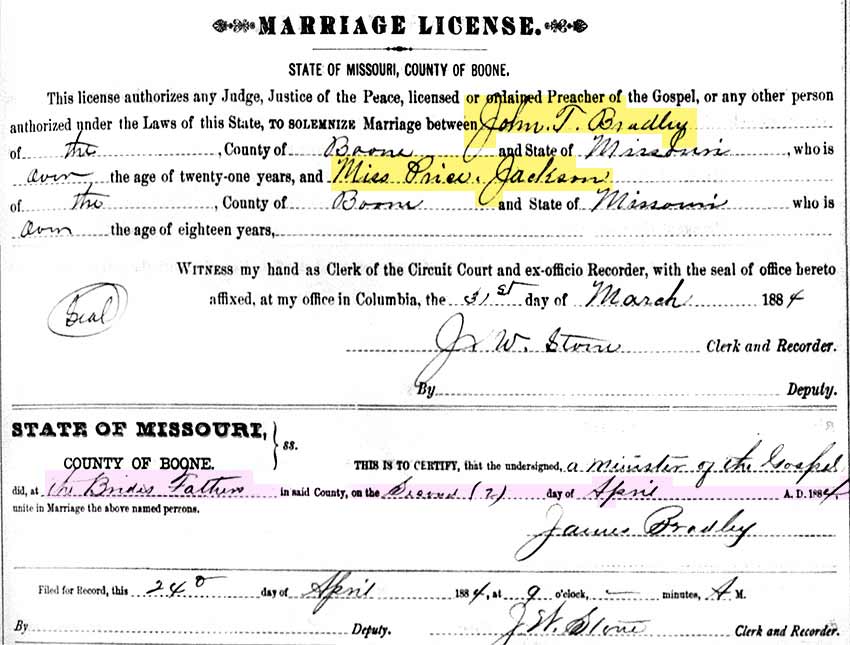 MARRIAGE LICENSE.
STATE OF MISSOURI, COUNTY OF BOONE.
This license authorizes any Judge, Justice of the Peace, licensed or ordained Preacher of the Gospel, or any other person
authorized under the Laws of this State, TO SOLEMNIZE Marriage between John. T. Bradley
of the , County of Boone and State of Missouri , who is
over the age of twenty-one years, and Miss Price. Jackson
of the , County of Boone and State of Missouri who is
over the age of eighteen years,
WITNESS my hand as Clerk of the Circuit Court and ex-officio Recorder, with the seal of office hereto
affixed, at my office in Columbia, the 31st day of March 1884
Seal
W. Stone Clerk and Recorder.
By Deputy.
STATE OF MISSOURI, } ss.
COUNTY OF BOONE. THIS IS TO CERTIFY, that the undersigned, a Minister of the Gospel
did, at the Brides Fathers in said County, on the Second (2) day of April A. D. 1884,
unite in Marriage the above named perrons.
James Bradley
Filed for Record, this 24 day of April 1884, at 9 o'clock, — minutes, A M.
By Deputy. J.W. Stone Clerk and Recorder.